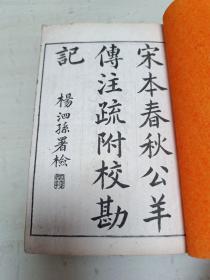 宋本春秋公羊
傳注疏附校勘
記
楊泗孫署檢